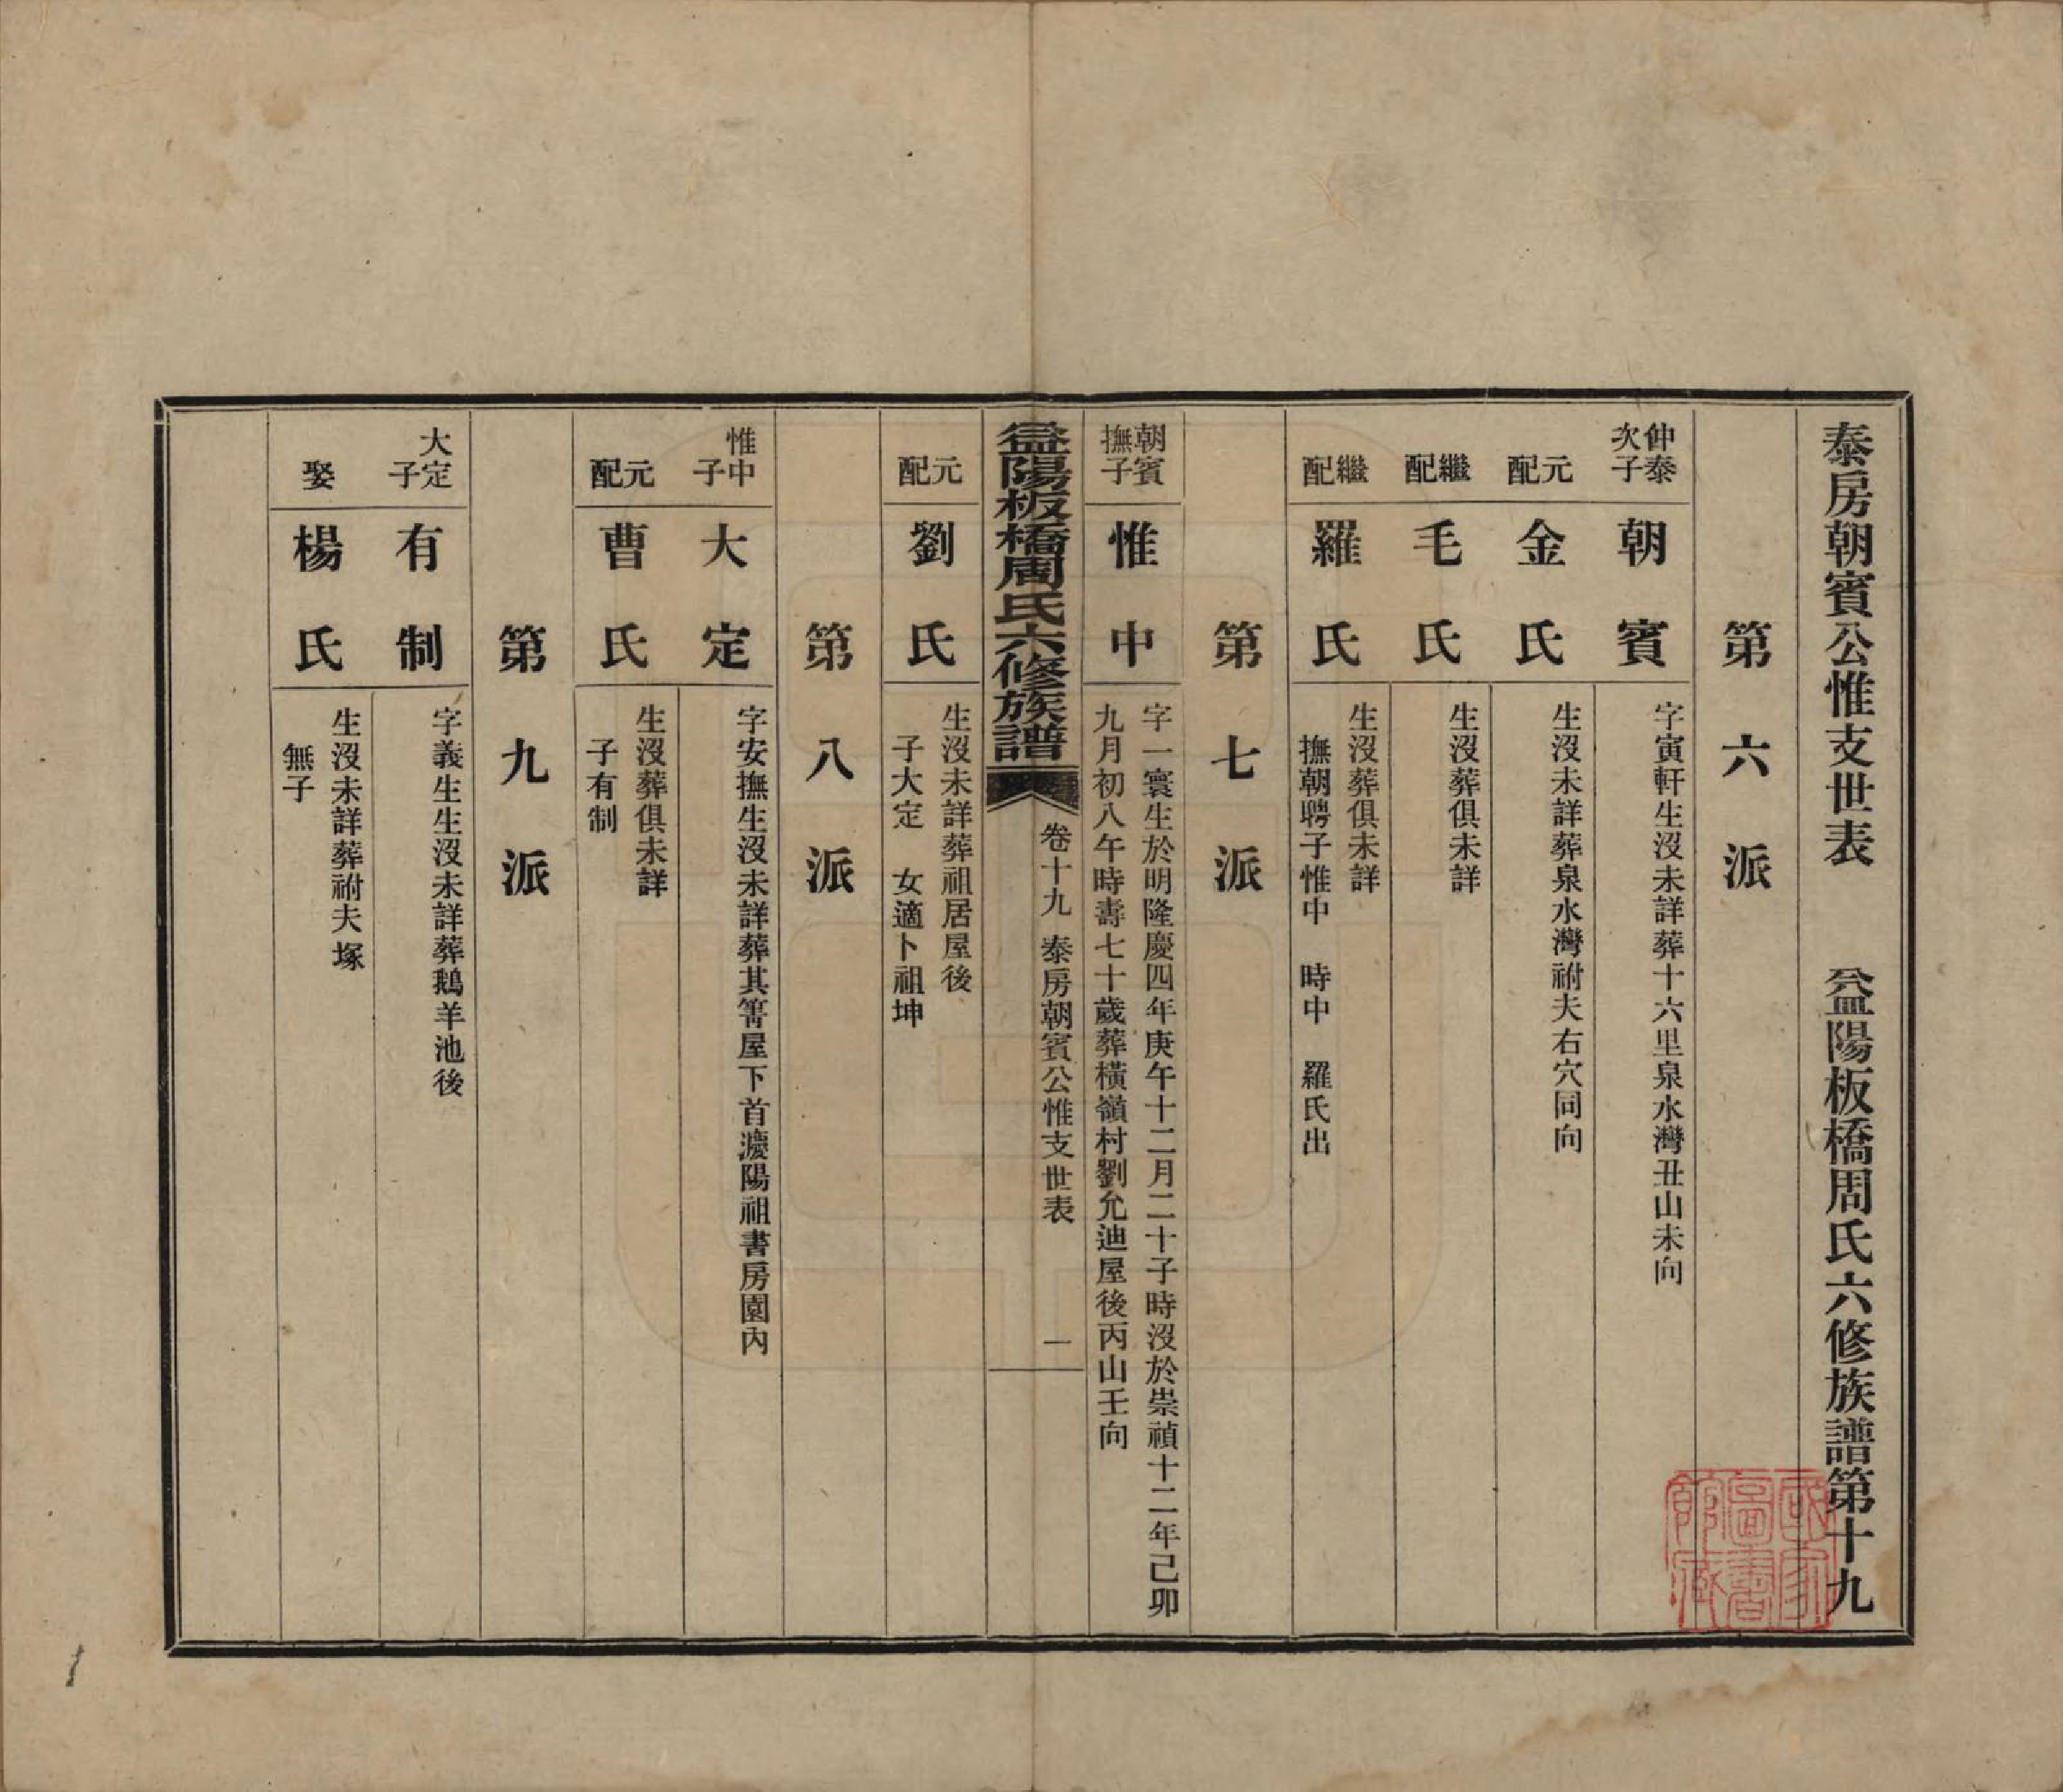 泰房朝賓公惟支世表　益陽板橋周氏六修族譜第十九
第六派
仲泰次子
朝賓
字寅軒生沒未詳葬十六里泉水灣丑山未向
元配
金氏
生沒未詳葬泉水灣祔夫右穴同向
繼配
毛氏
生沒葬俱未詳
繼配
羅氏
生沒葬俱未詳
撫朝聘子惟中　時中　羅氏出
第七派
朝賓撫子
惟中
字一寰生於明隆慶四年庚午十二月二十子時沒於崇禎十二年己卯
九月初八午時壽七十歲葬橫嶺村劉允迪屋後丙山壬向
益陽板橋周氏六修族譜
卷十九　泰房朝賓公惟支世表　一
元配
劉氏
生沒未詳葬祖居屋後
子大定　女適卜祖坤
第八派
惟中子
大定
字安撫生沒未詳葬其箐屋下首濃陽祖書房園內
元配
曹氏
生沒葬俱未詳
子有制
第九派
大定子
有制
字義生生沒未詳葬鵝羊池後
娶
楊氏
生沒未詳葬祔夫塚
無子
國家圖書館藏